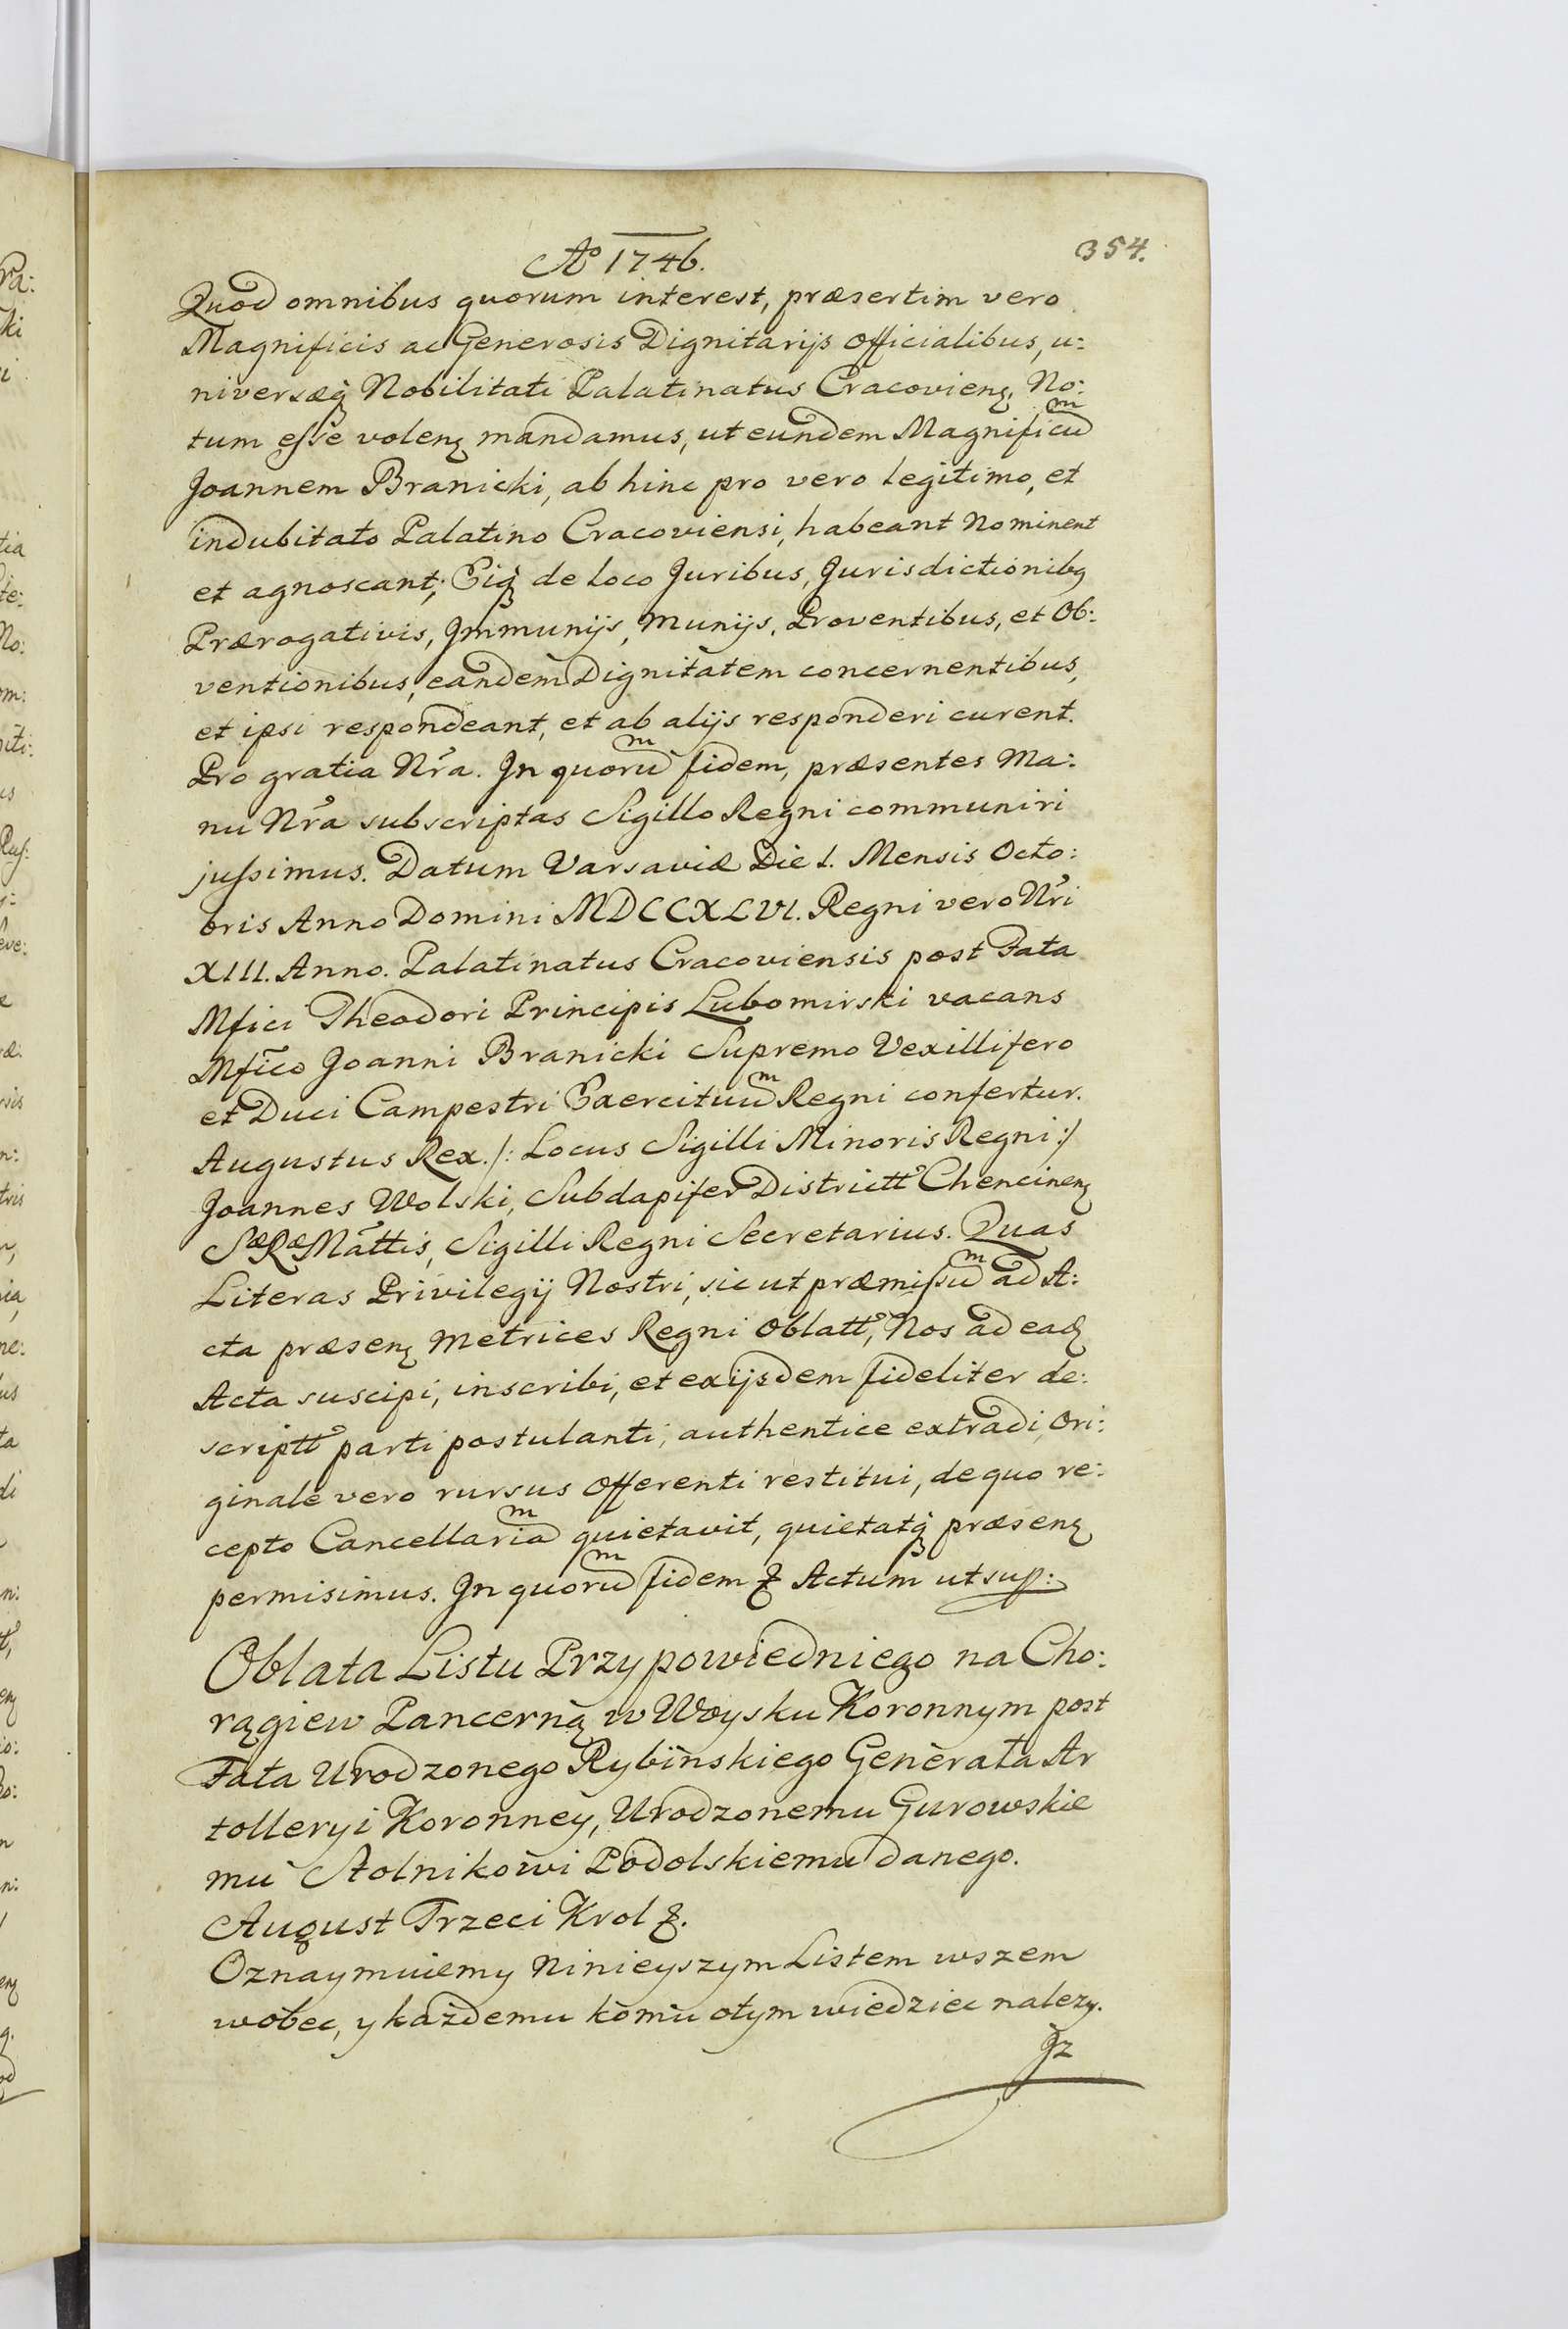 Aº 1746.
354.
Quod omnibus quorum interest, præsertim vero
Magnificis ac Generosis Dignitarijs Officialibus, u:
niversæq̃ Nobilitati Palatinatus Cracovienꝫ, No:
tum esse volenꝫ mandamus, ut eundem Magnificuᵐ
Joannem Branicki, ab hinc pro vero legitimo, et
indubitato Palatino Cracoviensi, habeant Nominent
et agnoscant; Eiq̃ de loco Juribus, Jurisdictionibꝫ
Prærogativis, Immunijs, Munijs, Proventibus, et Ob:
ventionibus, eandem Dignitatem concernentibus,
et ipsi respondeant, et ab alijs responderi curent.
Pro gratia Nr̃a. In quoruᵐ fidem, præsentes Ma:
nu Nr̃a subscriptas Sigillo Regni communiri
jussimus. Datum Varsaviæ Die 1. Mensis Octo:
bris Anno Domini MDCCXLVI. Regni vero Nr̃i
XIII. Anno. Palatinatus Cracoviensis post Fata
Mfici Theodori Principis Lubomirski vacans
Mfico Joanni Branicki Supremo Vexillifero
et Duci Campestri Exercituuᵐ Regni confertur.
Augustus Rex. /: Locus Sigilli Minoris Regni :/
Joannes Wolski, Subdapifer Districtt̃ Chencinenꝫ
SæRæMattis, Sigilli Regni Secretarius. Quas
Literas Privilegij Nostri, sic ut præmissuᵐ ad A:
cta præsenꝫ Metrices Regni Oblatt̃, Nos ad eadꝫ
Acta suscipi, inscribi, et ex ijsdem fideliter de:
scriptt̃ parti postulanti, authentice extradi, Ori:
ginale vero rursus Offerenti restitui, de quo re:
cepto Cancellariaᵐ quietavit, quietatq̃ præsenꝫ
permisimus. In quoruᵐ fidem & Actum ut sup:
Oblata Listu Przypowiedniego na Cho:
rągiew Pancerną w Woysku Koronnym post
Fata Urodzonego Rybinskiego Generała Ar
tolleryi Koronney, Urodzonemu Gurowskie
mu Stolnikowi Podolskiemu danego.
August Trzeci Krol &.
Oznaymuiemy Ninieyszym Listem wszem
wobec, y każdemu komu otym wiedziec nalezy.
Jz